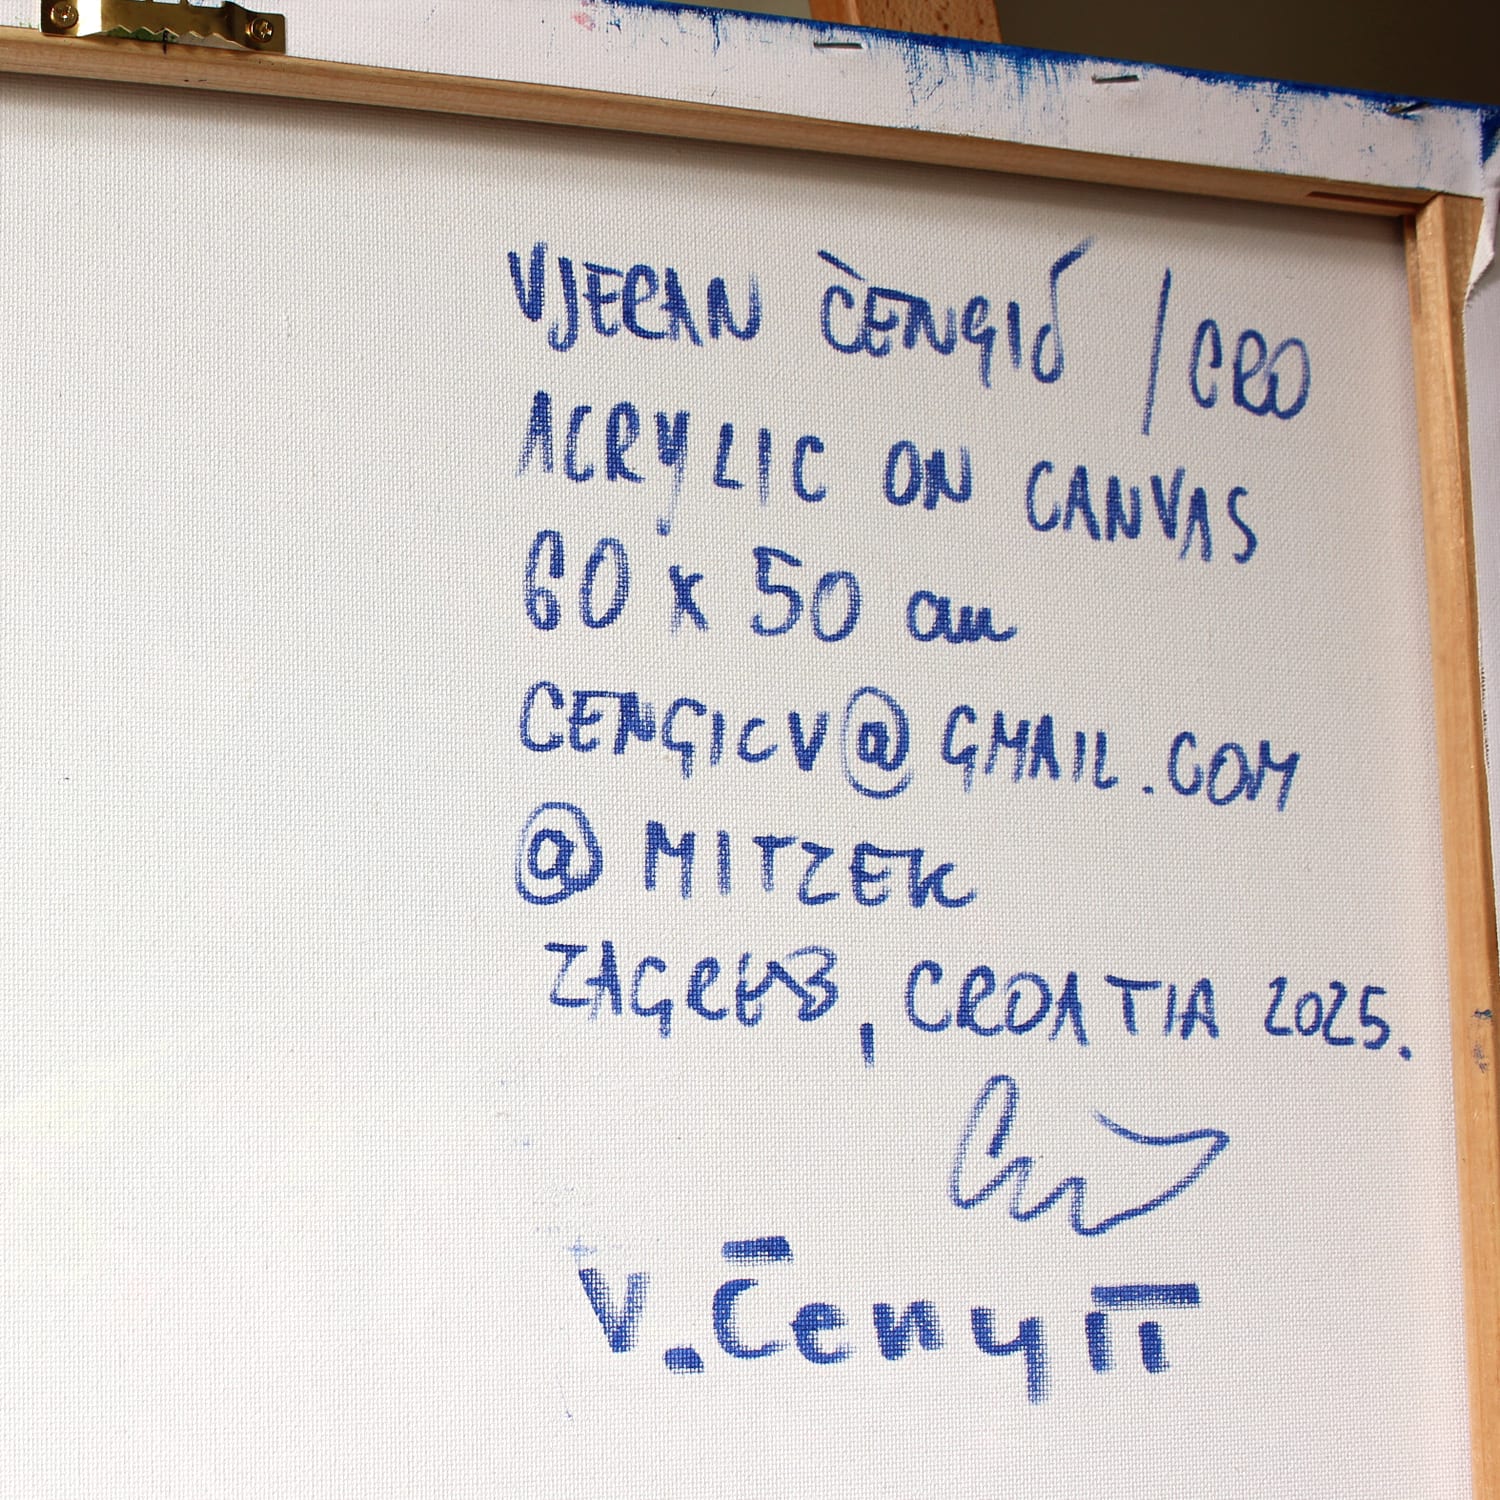 VJERAN ČENGIĆ / CRO
ACRYLIC ON CANVAS
60 x 50 cm
CENGICV@GMAIL.COM
@MITZEK
ZAGREB, CROATIA 2025.
V. Čengić